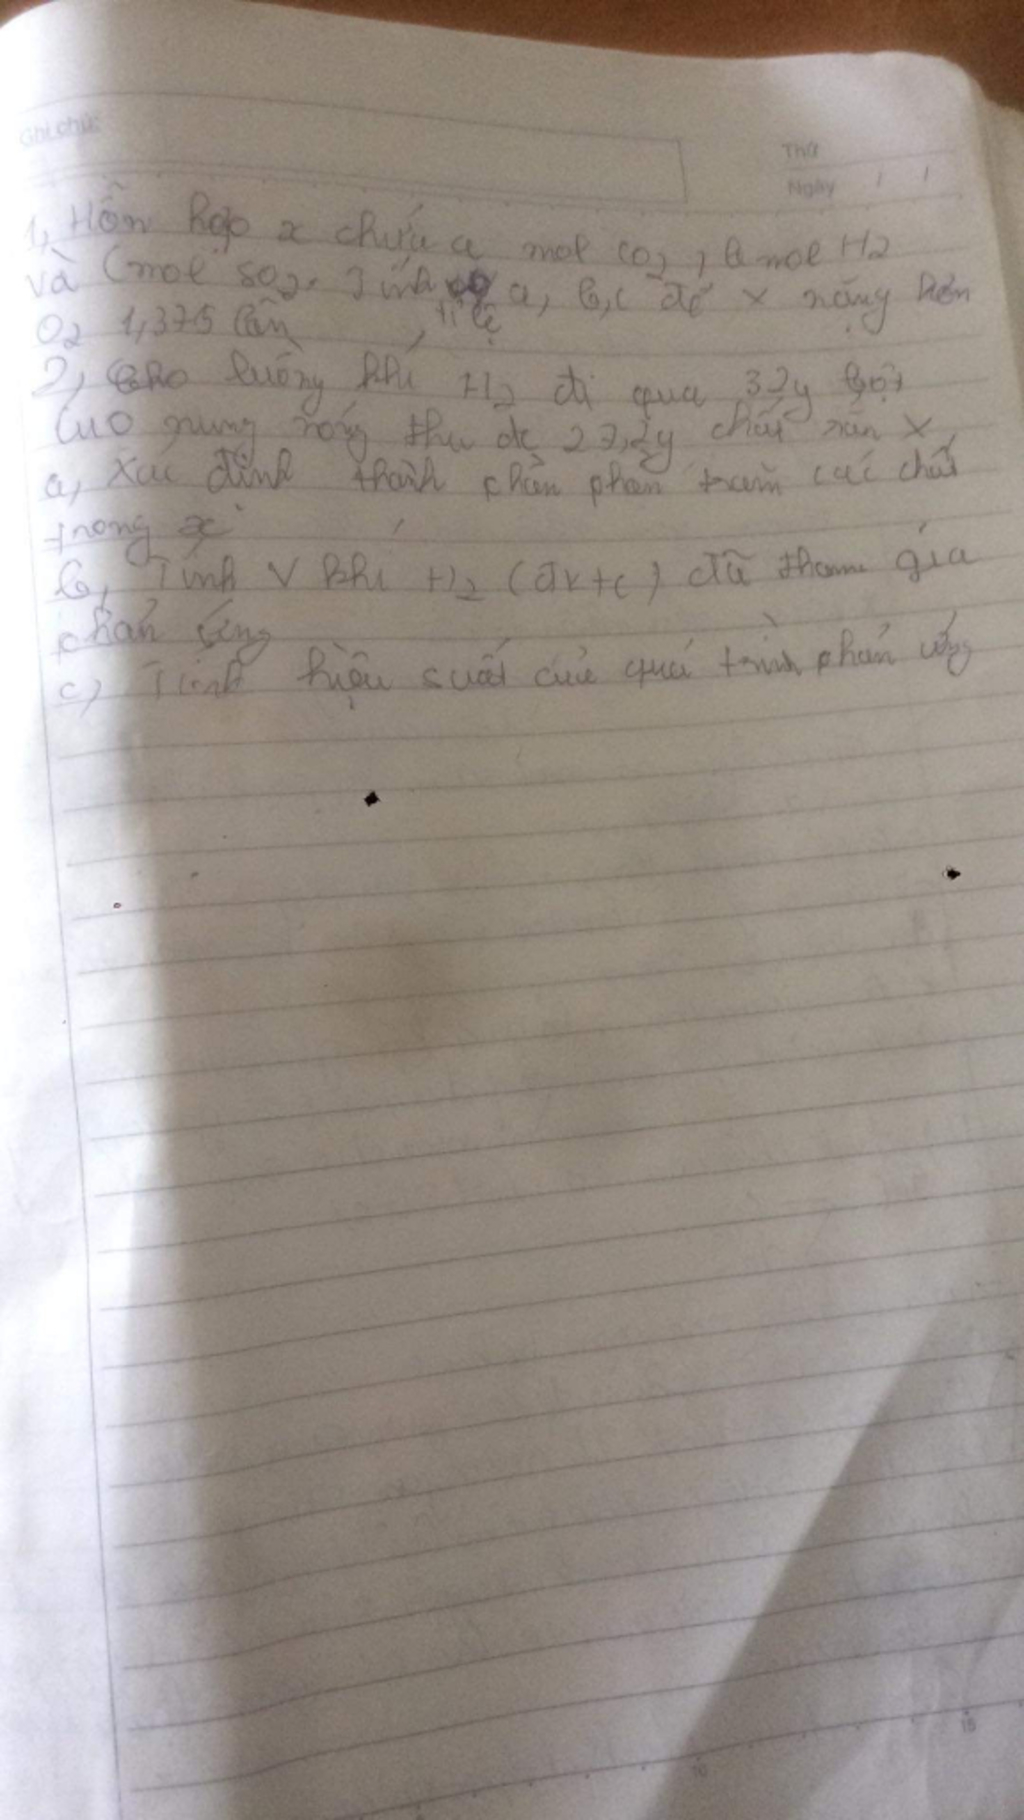 Ghi chú:
Thứ
Ngày / /
1, Hỗn hợp x chứa a mol CO2, b mol H2
và c mol SO2. Tính a, b, c để x nặng hơn
tỉ lệ
O2 1,375 lần
2, Cho luồng khí H2 đi qua 32g bột
CuO nung nóng thu đc 27,2g chất rắn X
a, Xác định thành phần phần trăm các chất
trong x
b, Tính V khí H2 (đktc) đã tham gia
phản ứng
c) Tính hiệu suất của quá trình phản ứng
10
15